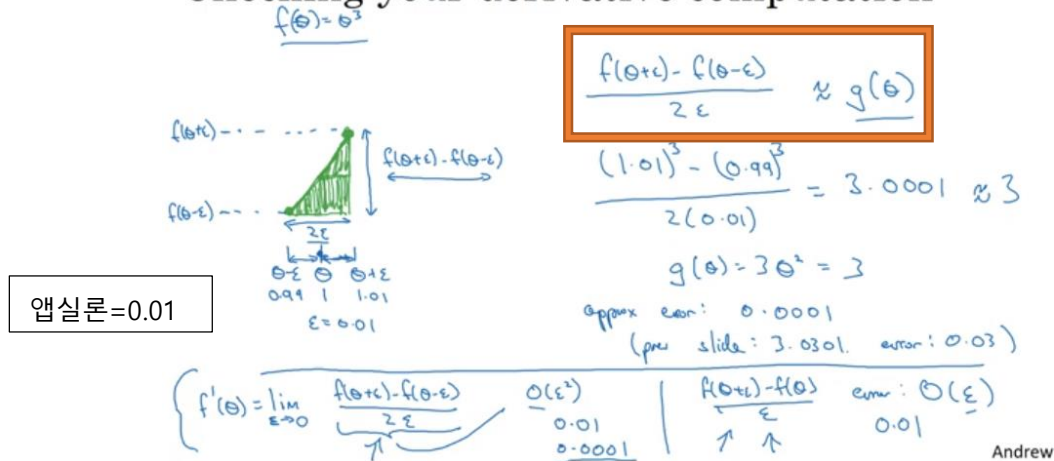 checking your derivative computation
f(θ)=θ³
f(θ+ε) - f(θ-ε)
2ε
≈ g(θ)
f(θ+ε)
f(θ+ε) - f(θ-ε)
f(θ-ε)
2ε
θ-ε θ θ+ε
0.99 1 1.01
ε=0.01
앱실론=0.01
(1.01)³ - (0.99)³
2(0.01)
= 3.0001 ≈ 3
g(θ) = 3θ² = 3
approx error: 0.0001
(prev slide: 3.0301. error: 0.03)
f'(θ) = lim
ε→0
f(θ+ε)-f(θ-ε)
2ε
O(ε²)
0.01
0.0001
f(θ+ε)-f(θ)
ε
error: O(ε)
0.01
Andrew